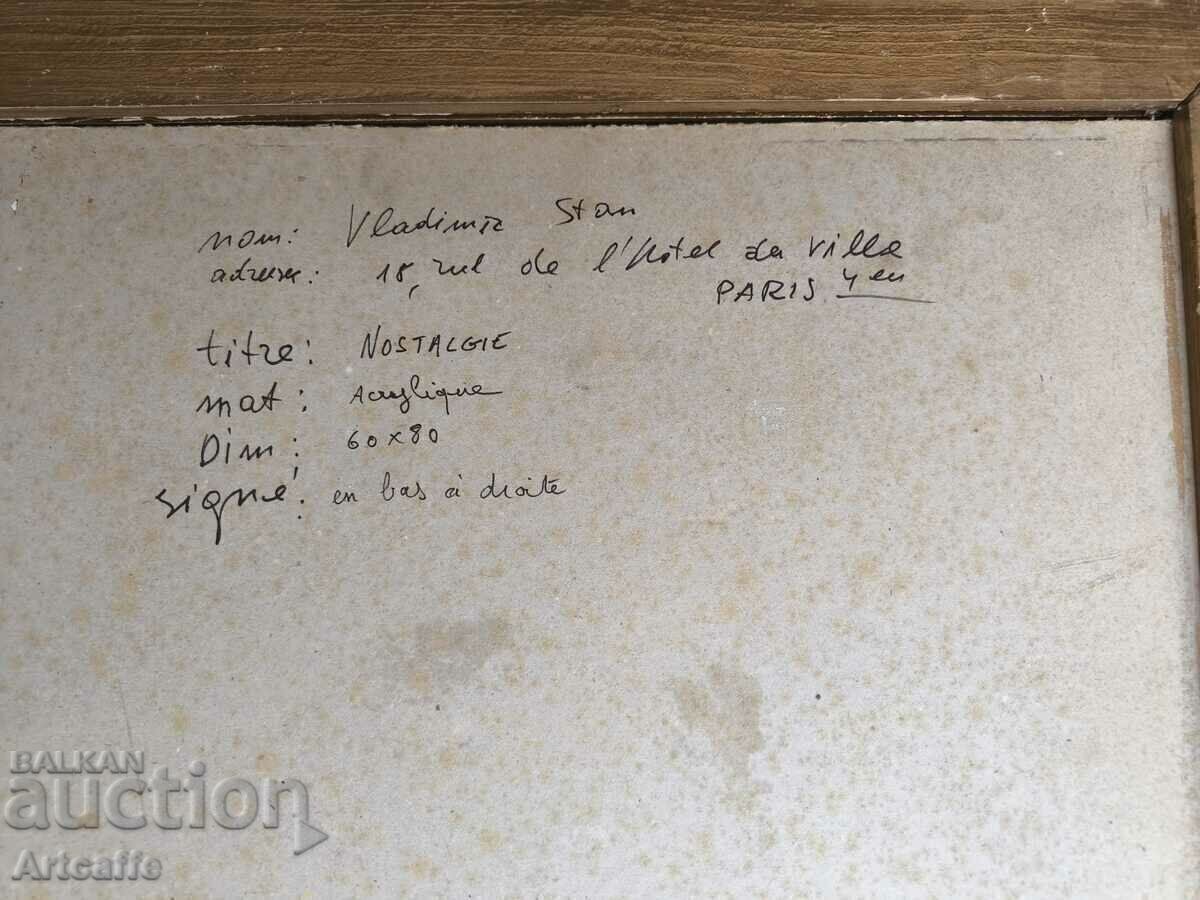 nom: Vladimir Stan
adresse: 18, rue de l'Hôtel de Ville
PARIS 4em
titre: NOSTALGIE
mat: Acrylique
Dim: 60x80
signé: en bas à droite
BALKAN
auction
Artcaffe